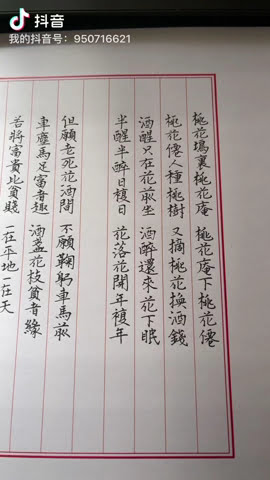 抖音
我的抖音号：950716621
桃花塢裏桃花庵 桃花庵下桃花僊
桃花僊人種桃樹 又摘桃花換酒錢
酒醒只在花前坐 酒醉還來花下眠
半醒半醉日複日 花落花開年複年
但願老死花酒間 不願鞠躬車馬前
車塵馬足富者趣 酒盞花枝貧者緣
若將富貴比貧賤 一在平地一在天